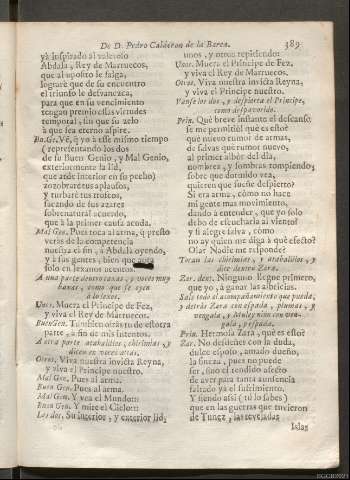 De D. Pedro Calderon de la Barca.
389
yà inspirado al valeroso
Abdalà, Rey de Marruecos,
que al oposito le salga,
lograrè que de su encuentro
el triunfo le desvanezca,
para que en su vencimiento
tengan premio essas virtudes
temporal, sin que su zelo
à que sea eterno aspire.
Bu.Ge. Vè, q yo à esse mismo tiempo
(representando los dos
de su Buen Genio, y Mal Genio,
exteriormente la lid,
que arde interior en su pecho)
zozobrarè tus aplausos,
y turbarè tus troféos,
sacando de sus azares
sobrenatural acuerdo,
que à la primer causa acuda.
Mal Gen. Pues toca al arma, q presto
veràs de la competencia
nuestra el fin, à Abdalà oyendo,
y à sus gentes, bien que
solo en lexanos acentos.
A una parte dentro caxas, y voces muy
baxas, como que se oyen
à lo lexos.
Unos. Muera el Principe de Fez,
y viva el Rey de Marruecos.
Buen Gen. Tambien otras tu de essotra
parte, à fin de mis intentos.
A otra parte atabalillos, chirimias, y
dicen en voces altas.
Otros. Viva nuestra invicta Reyna,
y viva el Principe nuestro.
Mal Gen. Pues al arma.
Buen Gen. Pues al arma.
Mal Gen. Y vea el Mundo::
Buen Gen. Y mire el Cielo::
Los dos. Su interior, y exterior lid,
unos, y otros repitiendo:
Unos. Muera el Principe de Fez,
y viva el Rey de Marruecos.
Otros. Viva nuestra invicta Reyna,
y viva el Principe nuestro.
Vanse los dos, y despierta el Principe,
como despavorido.
Prin. Què breve instante el descanso
se me permitiò! que es esto?
què nuevo rumor de armas,
de salvas què rumor nuevo,
al primer albor del dia,
nombres, y sombras rompiendo,
sobre que dormido vea,
quieren que sueñe despierto?
Si era arma, còmo no hace
mi gente mas movimiento,
dando à entender, que yo solo
debo de escucharla al viento?
y si alegre salva, còmo
no ay quien me diga à què efecto?
Ola? Nadie me responde?
Tocan las chirimias, y atabalillos, y
dice dentro Zara.
Zar. den. Ninguno llegue primero,
que yo, à ganar las albricias.
Sale todo el acompañamiento que pueda,
y detràs Zara con espada, plumas, y
vengala, y Muley niño con ven-
gala, y espada.
Prin. Hermosa Zara, què es esto?
Zar. No desdenes con la duda,
dulce esposo, amado dueño,
la fineza, pues no puede
ser, sino el rendido afecto
de aver para tanta ausencia
faltado yà el sufrimiento.
Y siendo assi (tù lo sabes)
que en las guerras que tuvieron
de Tunez, las reveladas
Islas